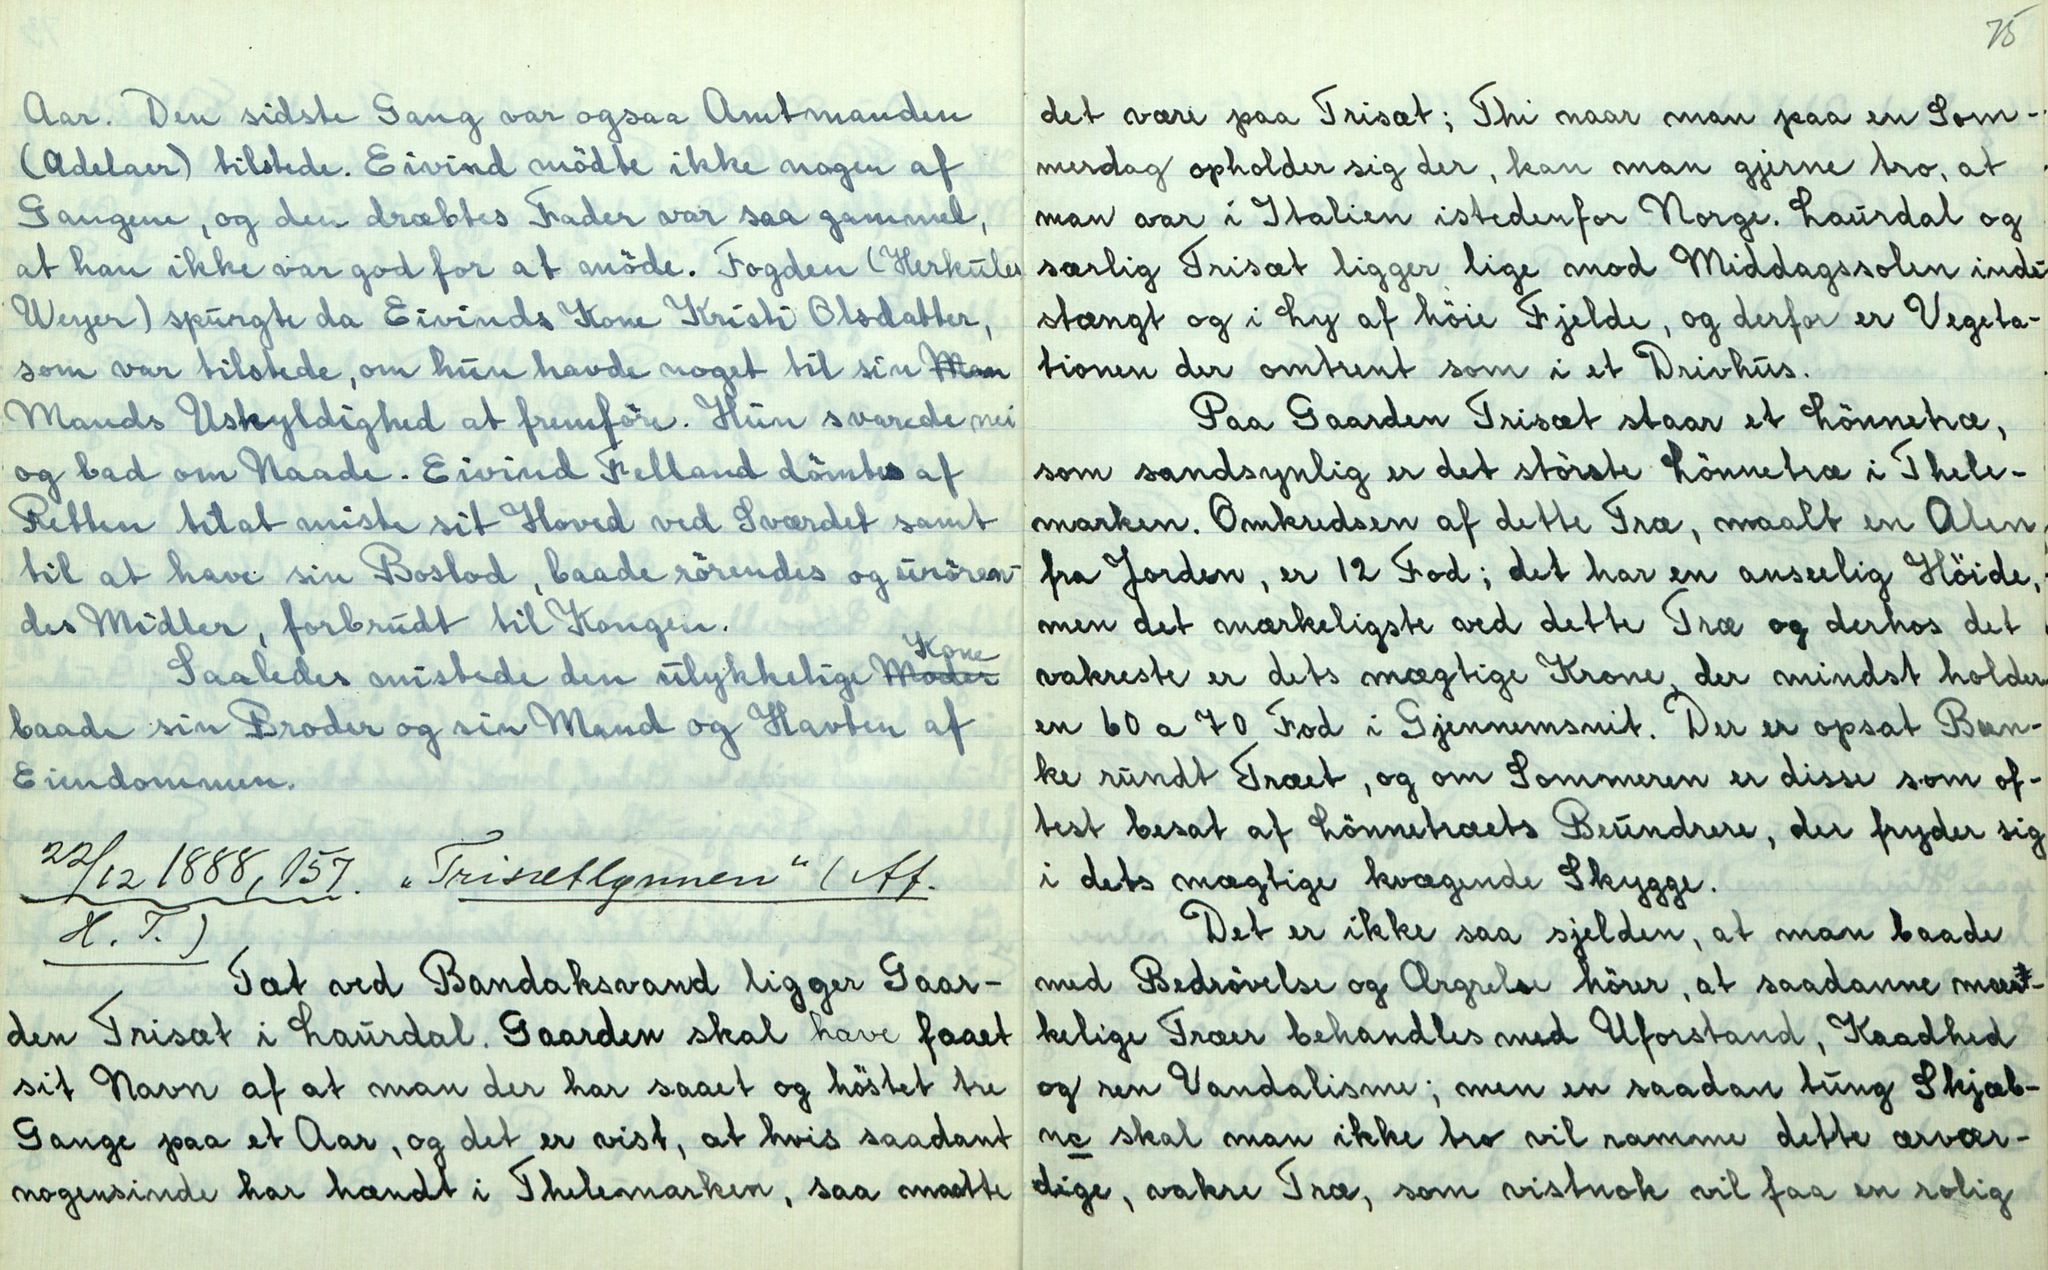 Aar. Den sidste Gang var ogsaa Amtmanden
(Adelaer) tilstede. Eivind mödte ikke nogen af
Gangene, og den dræbtes Fader var saa gammel,
at han ikke var god for at möde. Fogden (Herkules
Weyer) spurgte da Eivinds Kone Kristi Olsdatter,
som var tilstede, om hun havde noget til sin Man
Mands Uskyldighed at fremföre. Hun svarede nei
og bad om Naade. Eivind Felland dömtes af
Retten til at miste sit Hoved ved Sværdet samt
til at have sin Boslod, baade rörendes og urören-
des Midler, forbrudt til Kongen.
Kone
Saaledes mistede den ulykkelige Moder
baade sin Broder og sin Mand og Havten af
Eiendommen.
22/12 1888, 157. „Trisætlynnen" (Af.
H. T.)
Tæt ved Bandaksvand ligger Gaar-
den Trisæt i Laurdal. Gaarden skal have faaet
sit Navn af at man der har saaet og höstet tre
Gange paa et Aar, og det er vist, at hvis saadant
nogensinde har hændt i Thelemarken, saa maatte
75
det være paa Trisæt; Thi naar man paa en Som-
merdag opholder sig der, kan man gjerne tro, at
man var i Italien istedenfor Norge. Laurdal og
særlig Trisæt ligger lige mod Middagssolen inde
stængt og i Ly af höie Fjelde, og derfor er Vegeta-
tionen der omtrent som i et Drivhus.
Paa Gaarden Trisæt staar et Lönnetræ,
som sandsynlig er det störste Lönnetræ i Thele-
marken. Omkredsen af dette Træ, maalt en Alen
fra Jorden, er 12 Fod; det har en anseelig Höide,
men det mærkeligste ved dette Træ og derhos det
vakreste er dets mægtige Krone, der mindst holder
en 60 a 70 Fod i Gjennemsnit. Der er opsat Bæn-
ke rundt Træet, og om Sommeren er disse som of-
test besat af Lönnetræets Beundrere, der fryder sig
i dets mægtige kvægende Skygge.
Det er ikke saa sjelden, at man baade
med Bedrövelse og Ærgrelse hörer, at saadanne mær-
kelige Træer behandles med Uforstand, Kaadhed
og ren Vandalisme; men en saadan tung Skjæb-
ne skal man ikke tro vil ramme dette ærvær-
dige, vakre Træ, som vistnok vil faa en rolig